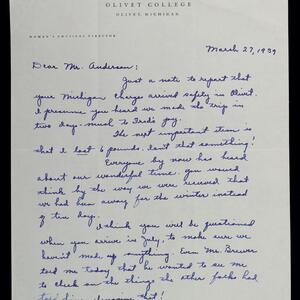 OLIVET COLLEGE
OLIVET, MICHIGAN
WOMEN'S PHYSICAL DIRECTOR
March 27, 1939
Dear Mr. Anderson:
Just a note to report that
your Michigan Charge arrived safely in Olivet.
I presume you heard we made the trip in
two days - much to joy.
The next important item is
that I lost 6 pounds. Isn't that something!
Everyone by now has heard
about our wonderful time. You would
think by the way we were received that
we had been away for the winter instead
of ten days.
I think you will be questioned
when you arrive in July, to make sure we
haven't made up anything. Even Mr. Brewer
told me today that he wanted to see me
to check on the things the other folks had
told him that!